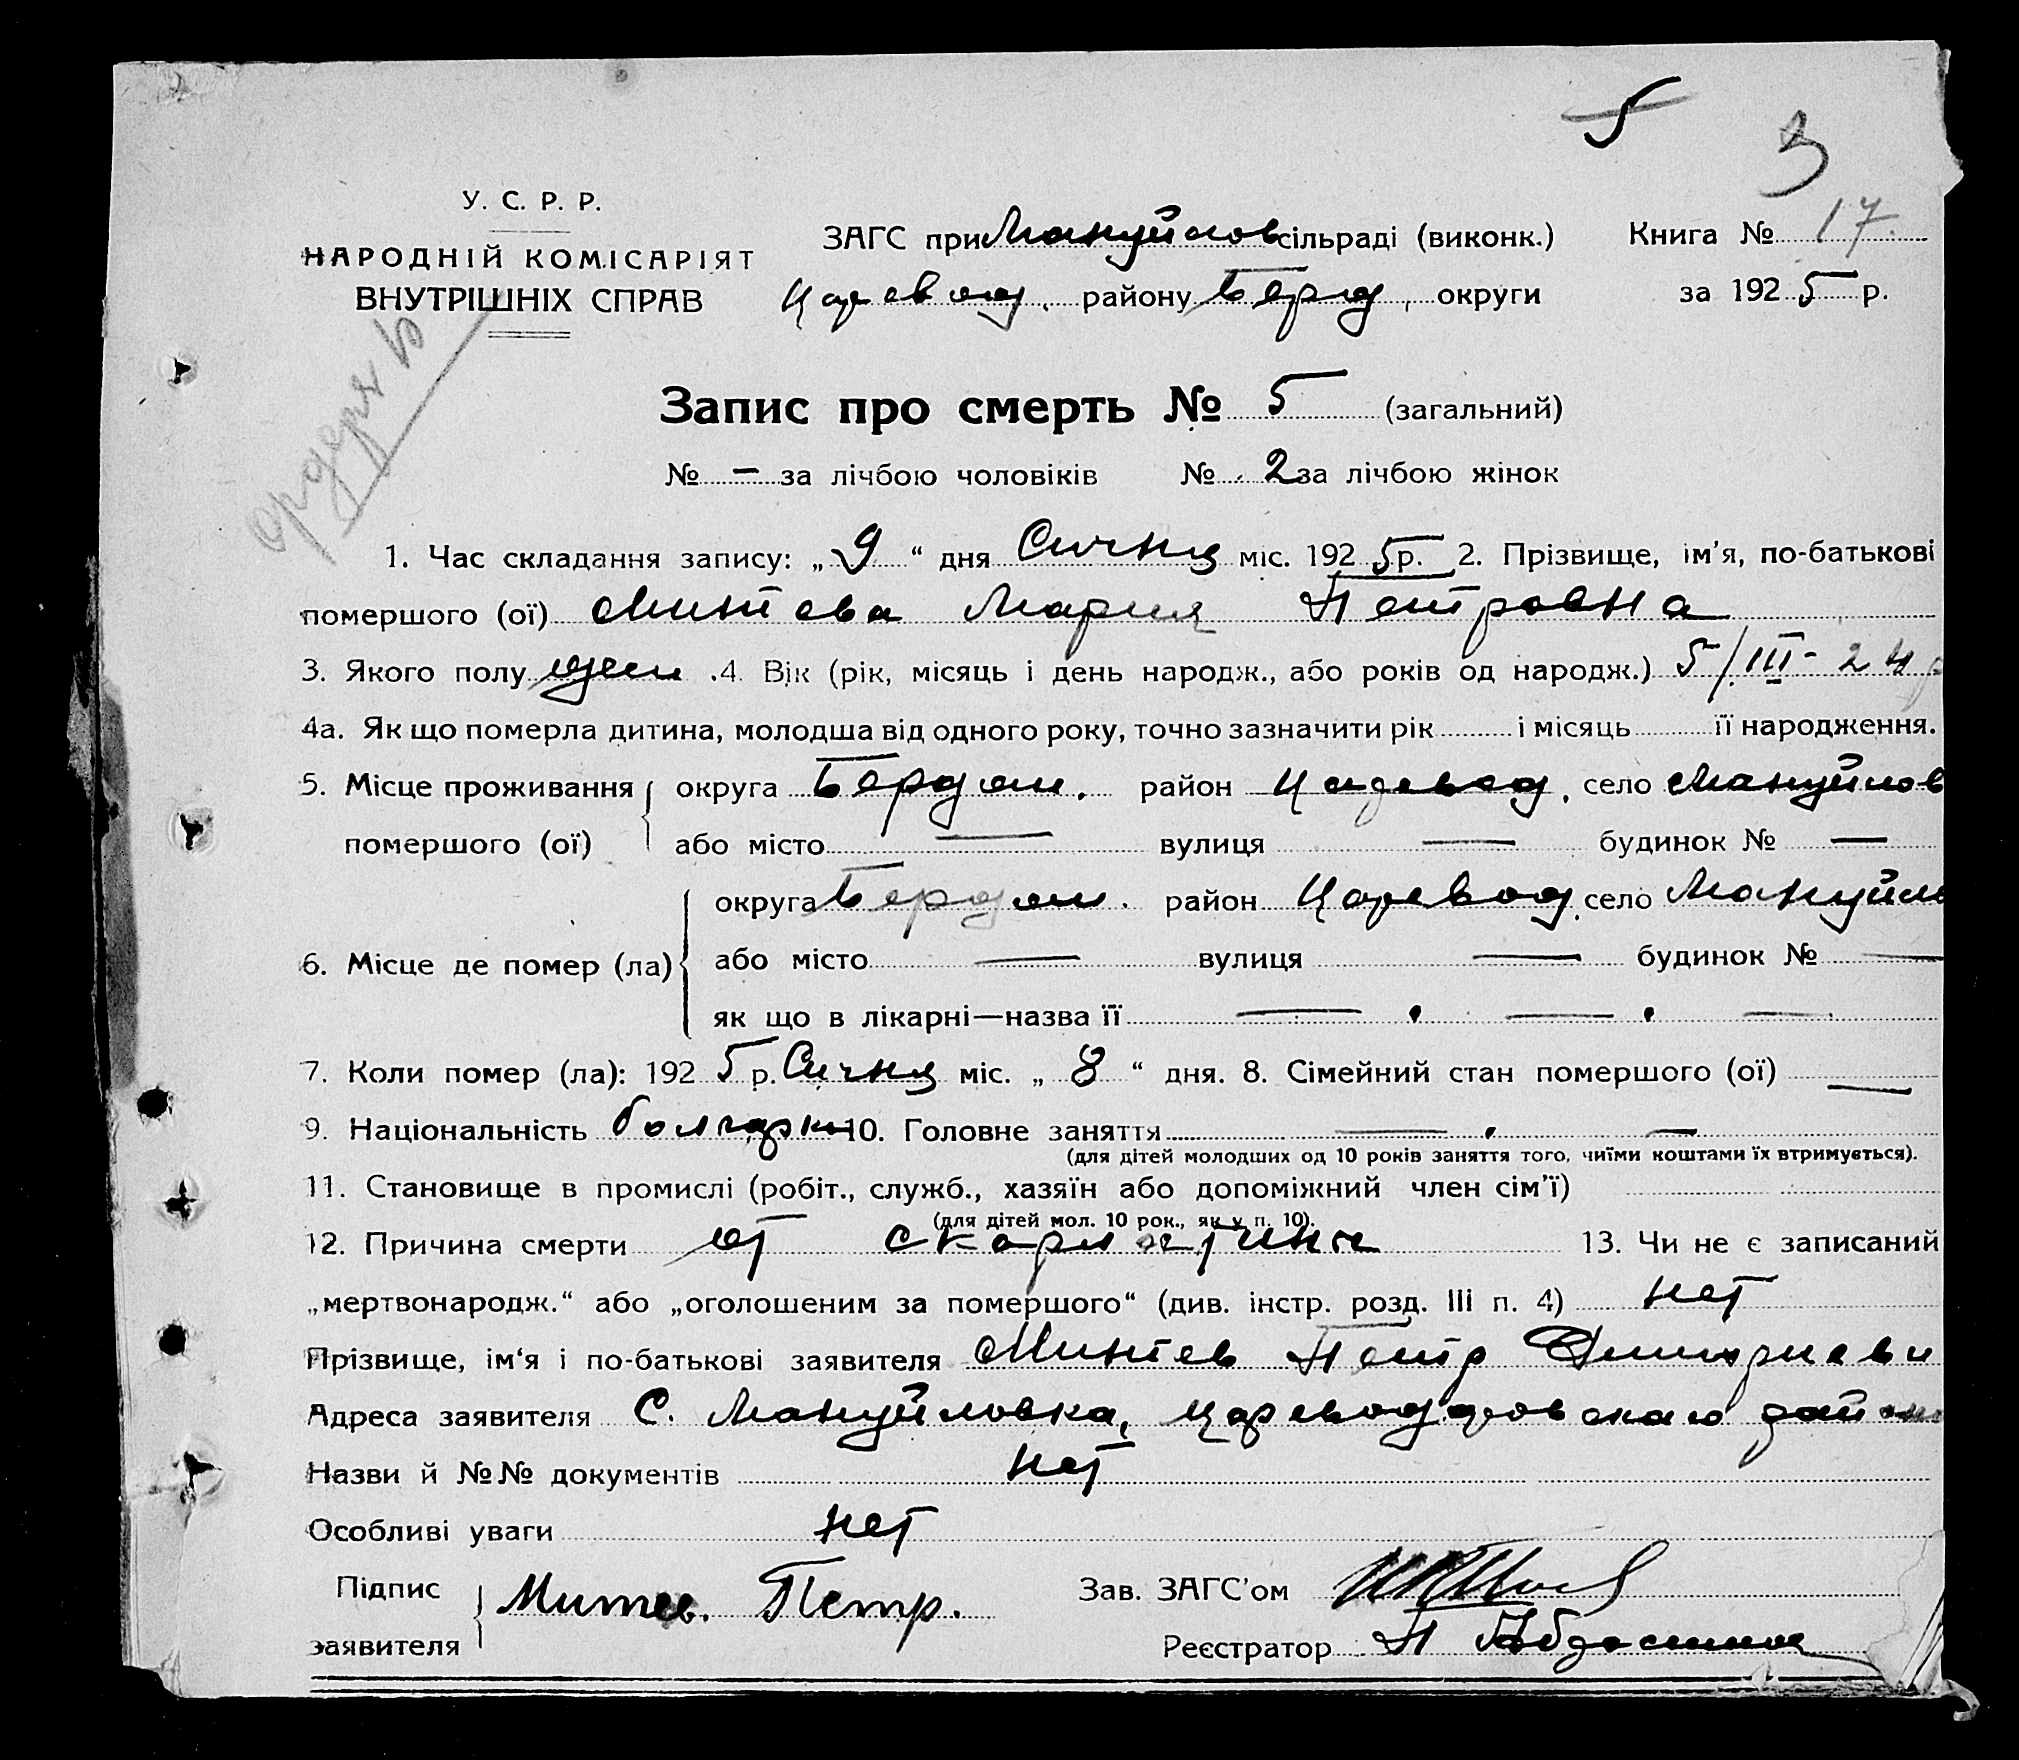 5
3
У. С. Р. Р.
НАРОДНІЙ КОМІСАРІЯТ
ВНУТРІШНІХ СПРАВ
ЗАГС при Мануйлов сільраді (виконк.) Книга № 17
Царевод. району Берд, округи за 1925 р.
Запис про смерть № 5 (загальний)
№ — за лічбою чоловіків № 2 за лічбою жінок
1. Час складання запису: „9“ дня Січня міс. 1925 р. 2. Прізвище, ім'я, по-батькові
помершого (ої) Митева Мария Петровна
3. Якого полу жен. 4. Вік (рік, місяць і день народж., або років од народж.) 5/III-24 р
4а. Як що померла дитина, молодша від одного року, точно зазначити рік і місяць її народження.
5. Місце проживання помершого (ої) округа Бердян. район Царевод, село Мануйлов
або місто — вулиця — будинок № —
6. Місце де помер (ла) округа Бердян. район Царевод, село Мануйло
або місто — вулиця — будинок № —
як що в лікарні—назва її — — —
7. Коли помер (ла): 1925 р. Січня міс. „8“ дня. 8. Сімейний стан помершого (ої) —
9. Національність болгарка 10. Головне заняття — —
(для дітей молодших од 10 років заняття того, чиїми коштами їх втримується).
11. Становище в промислі (робіт., служб., хазяїн або допоміжний член сім'ї)
(для дітей мол. 10 рок., як у п. 10).
12. Причина смерти от скарлатины 13. Чи не є записаний
„мертвонародж.“ або „оголошеним за помершого“ (див. інстр. розд. III п. 4) нет
Прізвище, ім'я і по-батькові заявителя Митев Петр Димитриеви
Адреса заявителя С. Мануйловка, Царевод
Назви й №№ документів нет
Особливі уваги нет
Підпис заявителя Митев. Петр.
Зав. ЗАГС'ом
Реєстратор